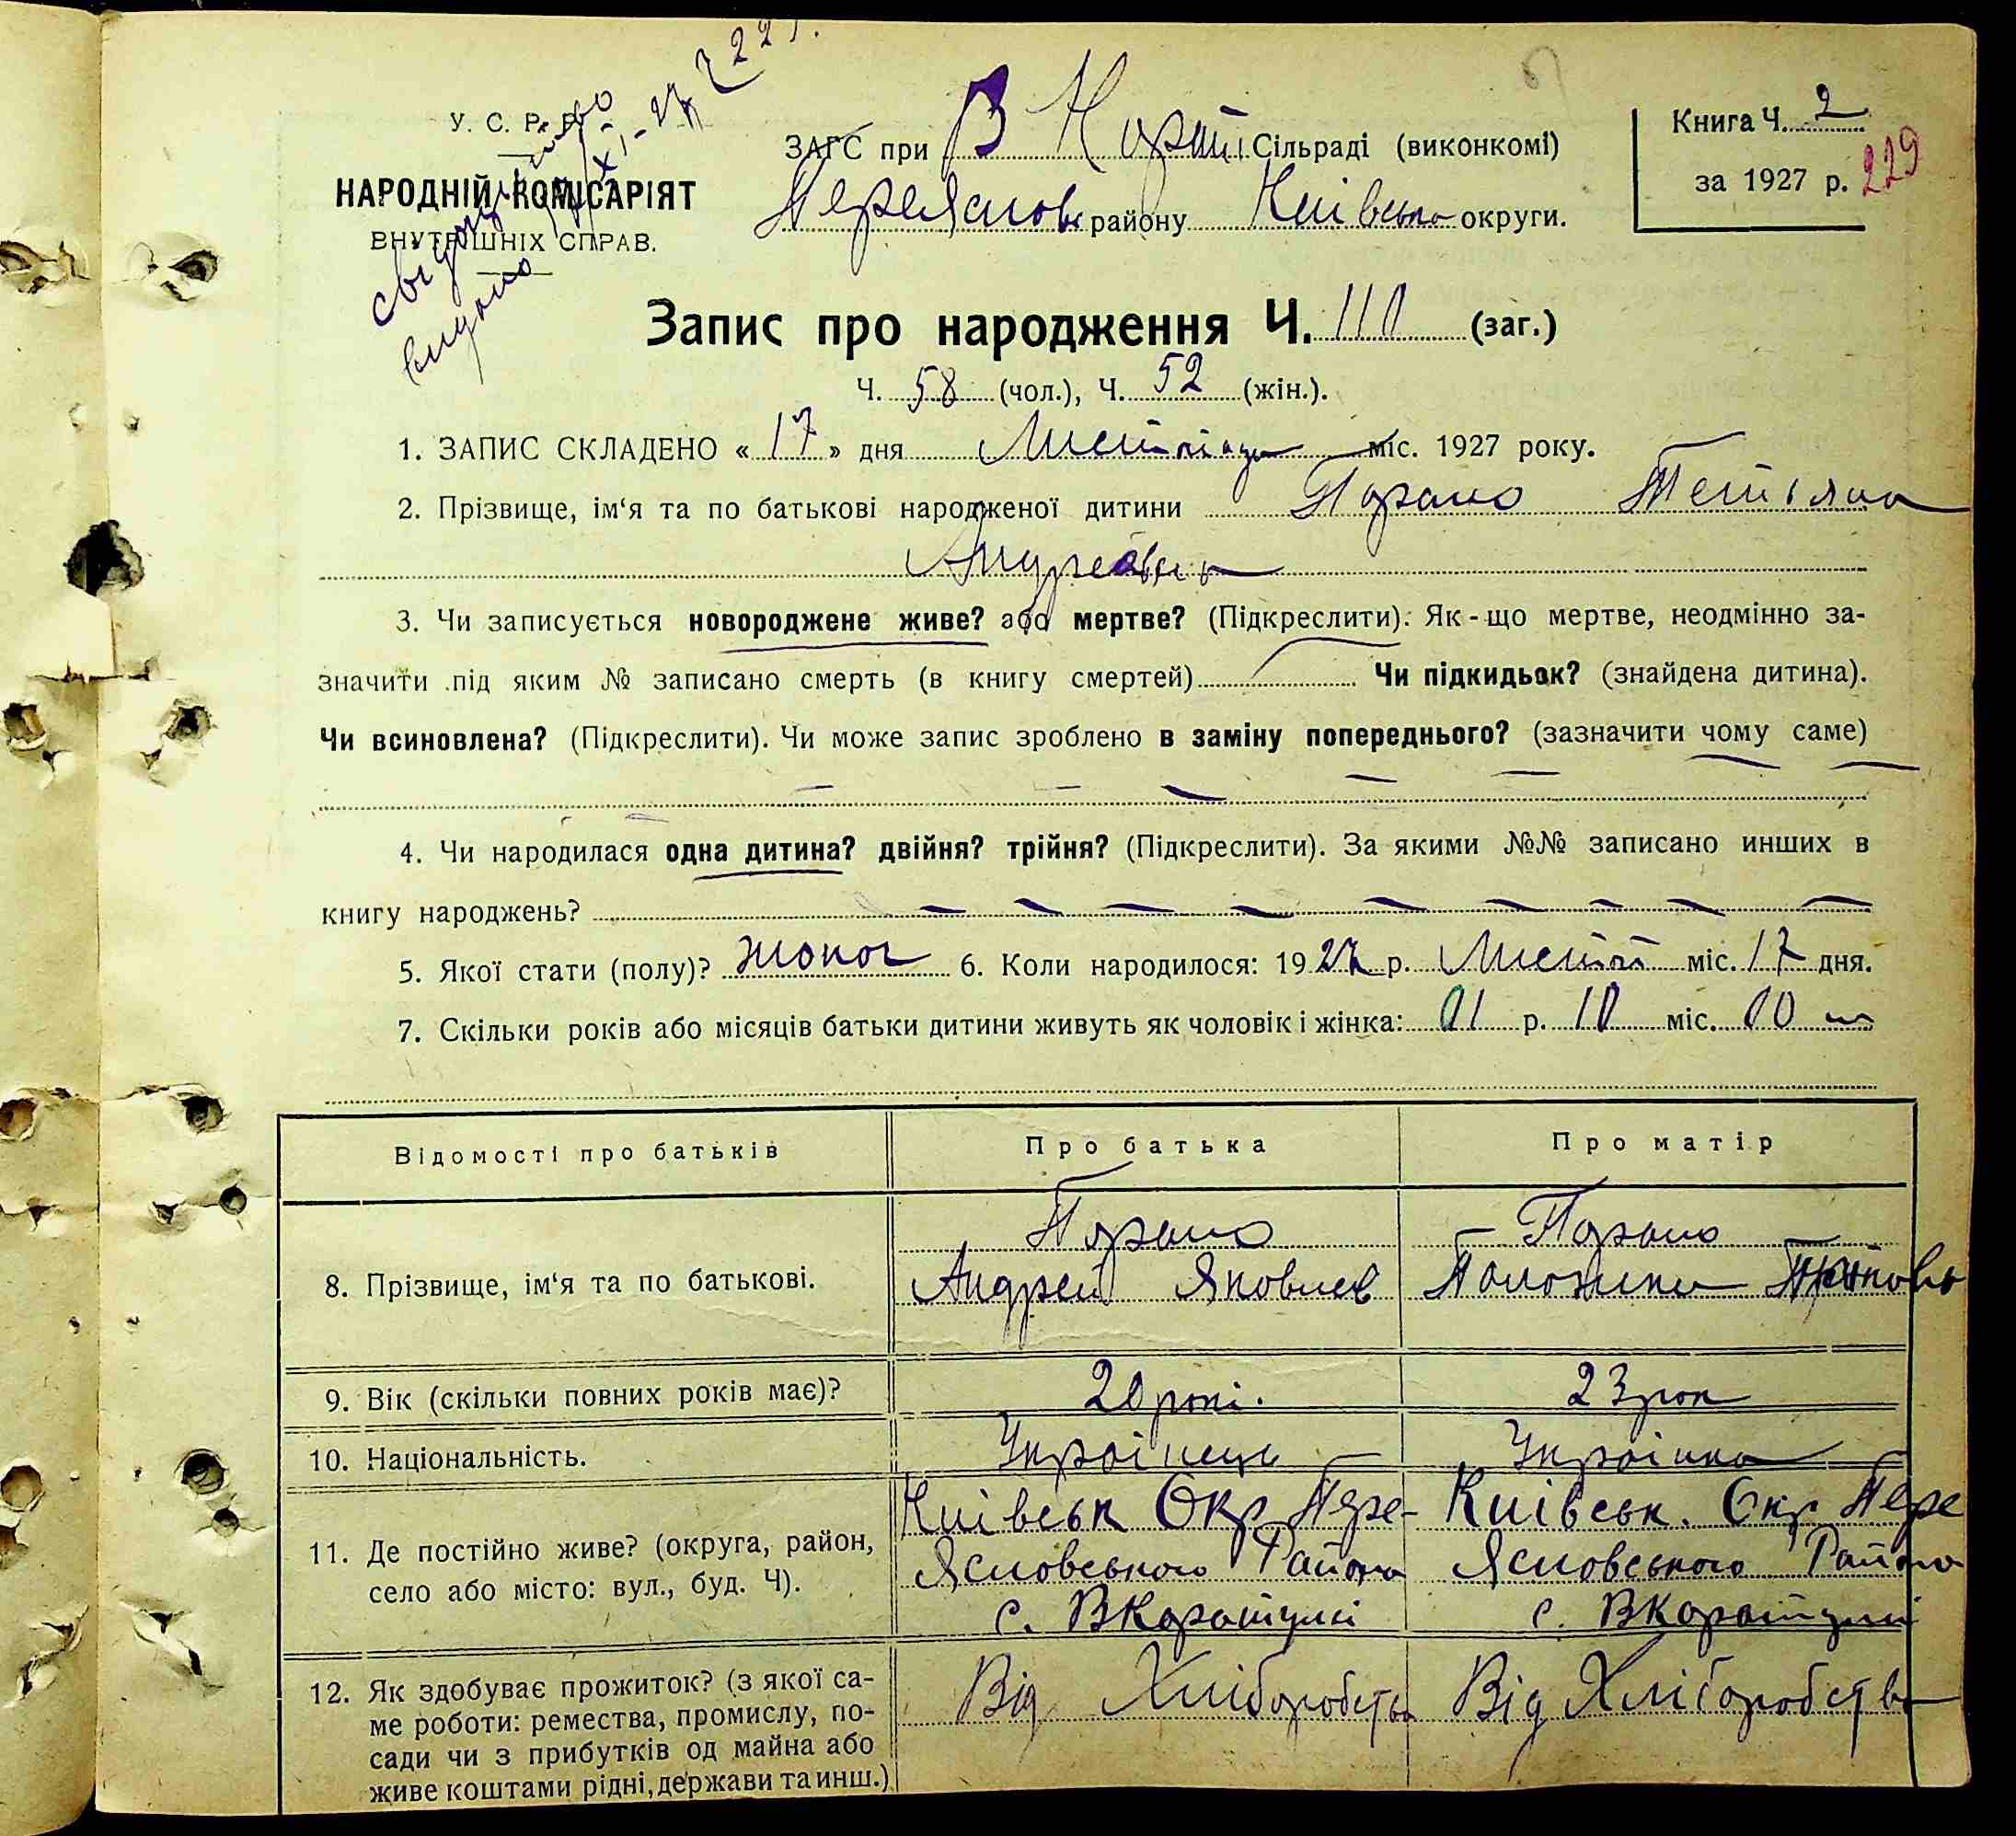 У. С. Р. Р.
НАРОДНІЙ КОМІСАРІЯТ
ВНУТРІШНІХ СПРАВ.
видано
ЗАГС при В Карат Сільраді (виконкомі)
району Київсько округи.
Книга Ч. 2
за 1927 р. 229
Запис про народження Ч. 110 (заг.)
Ч. 58 (чол.), Ч. 52 (жін.).
1. ЗАПИС СКЛАДЕНО « 17 » дня Листопада міс. 1927 року.
2. Прізвище, ім‘я та по батькові народженої дитини Тетіяна
3. Чи записується новороджене живе? або мертве? (Підкреслити). Як-що мертве, неодмінно за-
значити під яким № записано смерть (в книгу смертей) Чи підкидьок? (знайдена дитина).
Чи всиновлена? (Підкреслити). Чи може запис зроблено в заміну попереднього? (зазначити чому саме)
4. Чи народилася одна дитина? двійня? трійня? (Підкреслити). За якими №№ записано инших в
книгу народжень?
5. Якої стати (полу)? 6. Коли народилося: 1927 р. Листоп міс. 17 дня.
7. Скільки років або місяців батьки дитини живуть як чоловік і жінка: 01 р. 10 міс. 00
Відомості про батьків Про батька Про матір
8. Прізвище, ім‘я та по батькові.
Андрей Яковлев
9. Вік (скільки повних років має)? 20 рокі. 23 рок
10. Національність. Украінець Украінка
11. Де постійно живе? (округа, район,
село або місто: вул., буд. Ч).
Київськ Окр Пере-
Яславського Району
с. ВКаратулі
Київськ. Окр Пере
Яславського Району
с. ВКаратулі
12. Як здобуває прожиток? (з якої са-
ме роботи: ремества, промислу, по-
сади чи з прибутків од майна або
живе коштами рідні, держави та инш.)
Від Хліборобств
Від Хліборобства